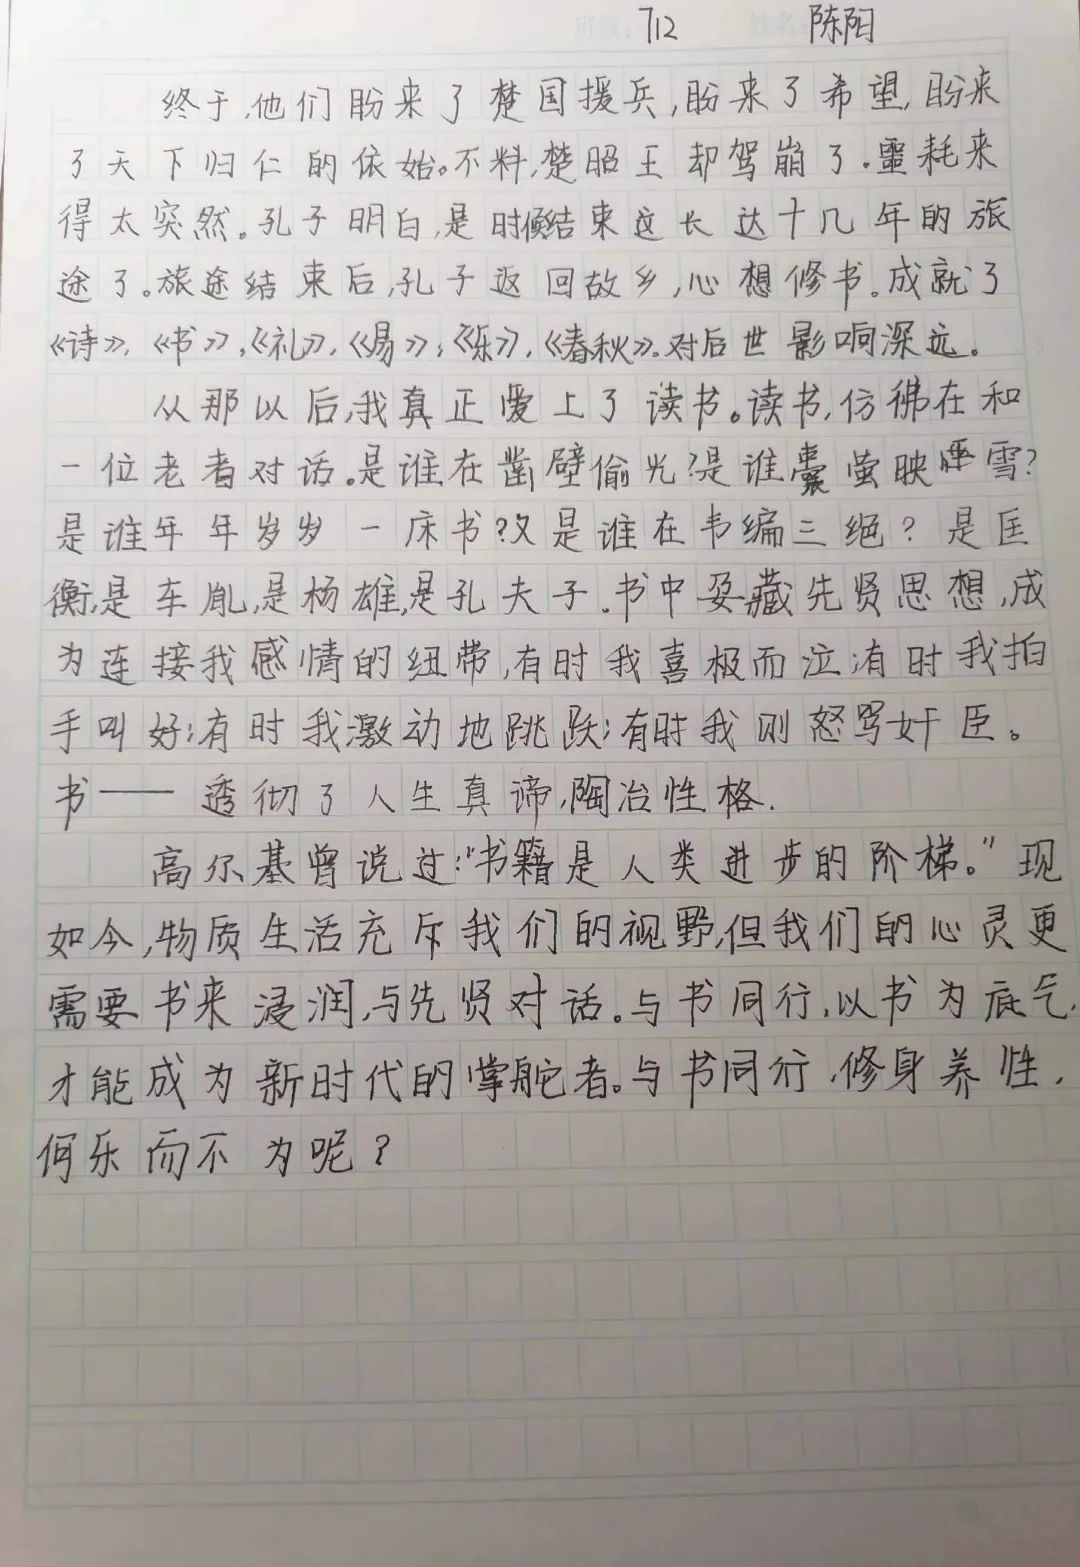 712 陈阳
终于,他们盼来了楚国援兵,盼来了希望,盼来
了天下归仁的依始。不料,楚昭王却驾崩了.噩耗来
得太突然。孔子明白,是时候结束这长达十几年的旅
途了。旅途结束后,孔子返回故乡,心想修书。成就了
《诗》,《书》,《礼》,《易》,《乐》,《春秋》.对后世影响深远。
从那以后,我真正爱上了读书。读书,仿彿在和
一位老者对话.是谁在凿壁偷光?是谁囊萤映雪?
是谁年年岁岁一床书?又是谁在韦编三绝?是匡
衡,是车胤,是杨雄,是孔夫子.书中蕴藏先贤思想,成
为连接我感情的纽带,有时我喜极而泣;有时我拍
手叫好;有时我激动地跳跃;有时我则怒骂奸臣。
书——透彻了人生真谛,陶冶性格.
高尔基曾说过:"书籍是人类进步的阶梯。"现
如今,物质生活充斥我们的视野,但我们的心灵更
需要书来浸润,与先贤对话。与书同行,以书为底气,
才能成为新时代的掌舵者。与书同行,修身养性,
何乐而不为呢?